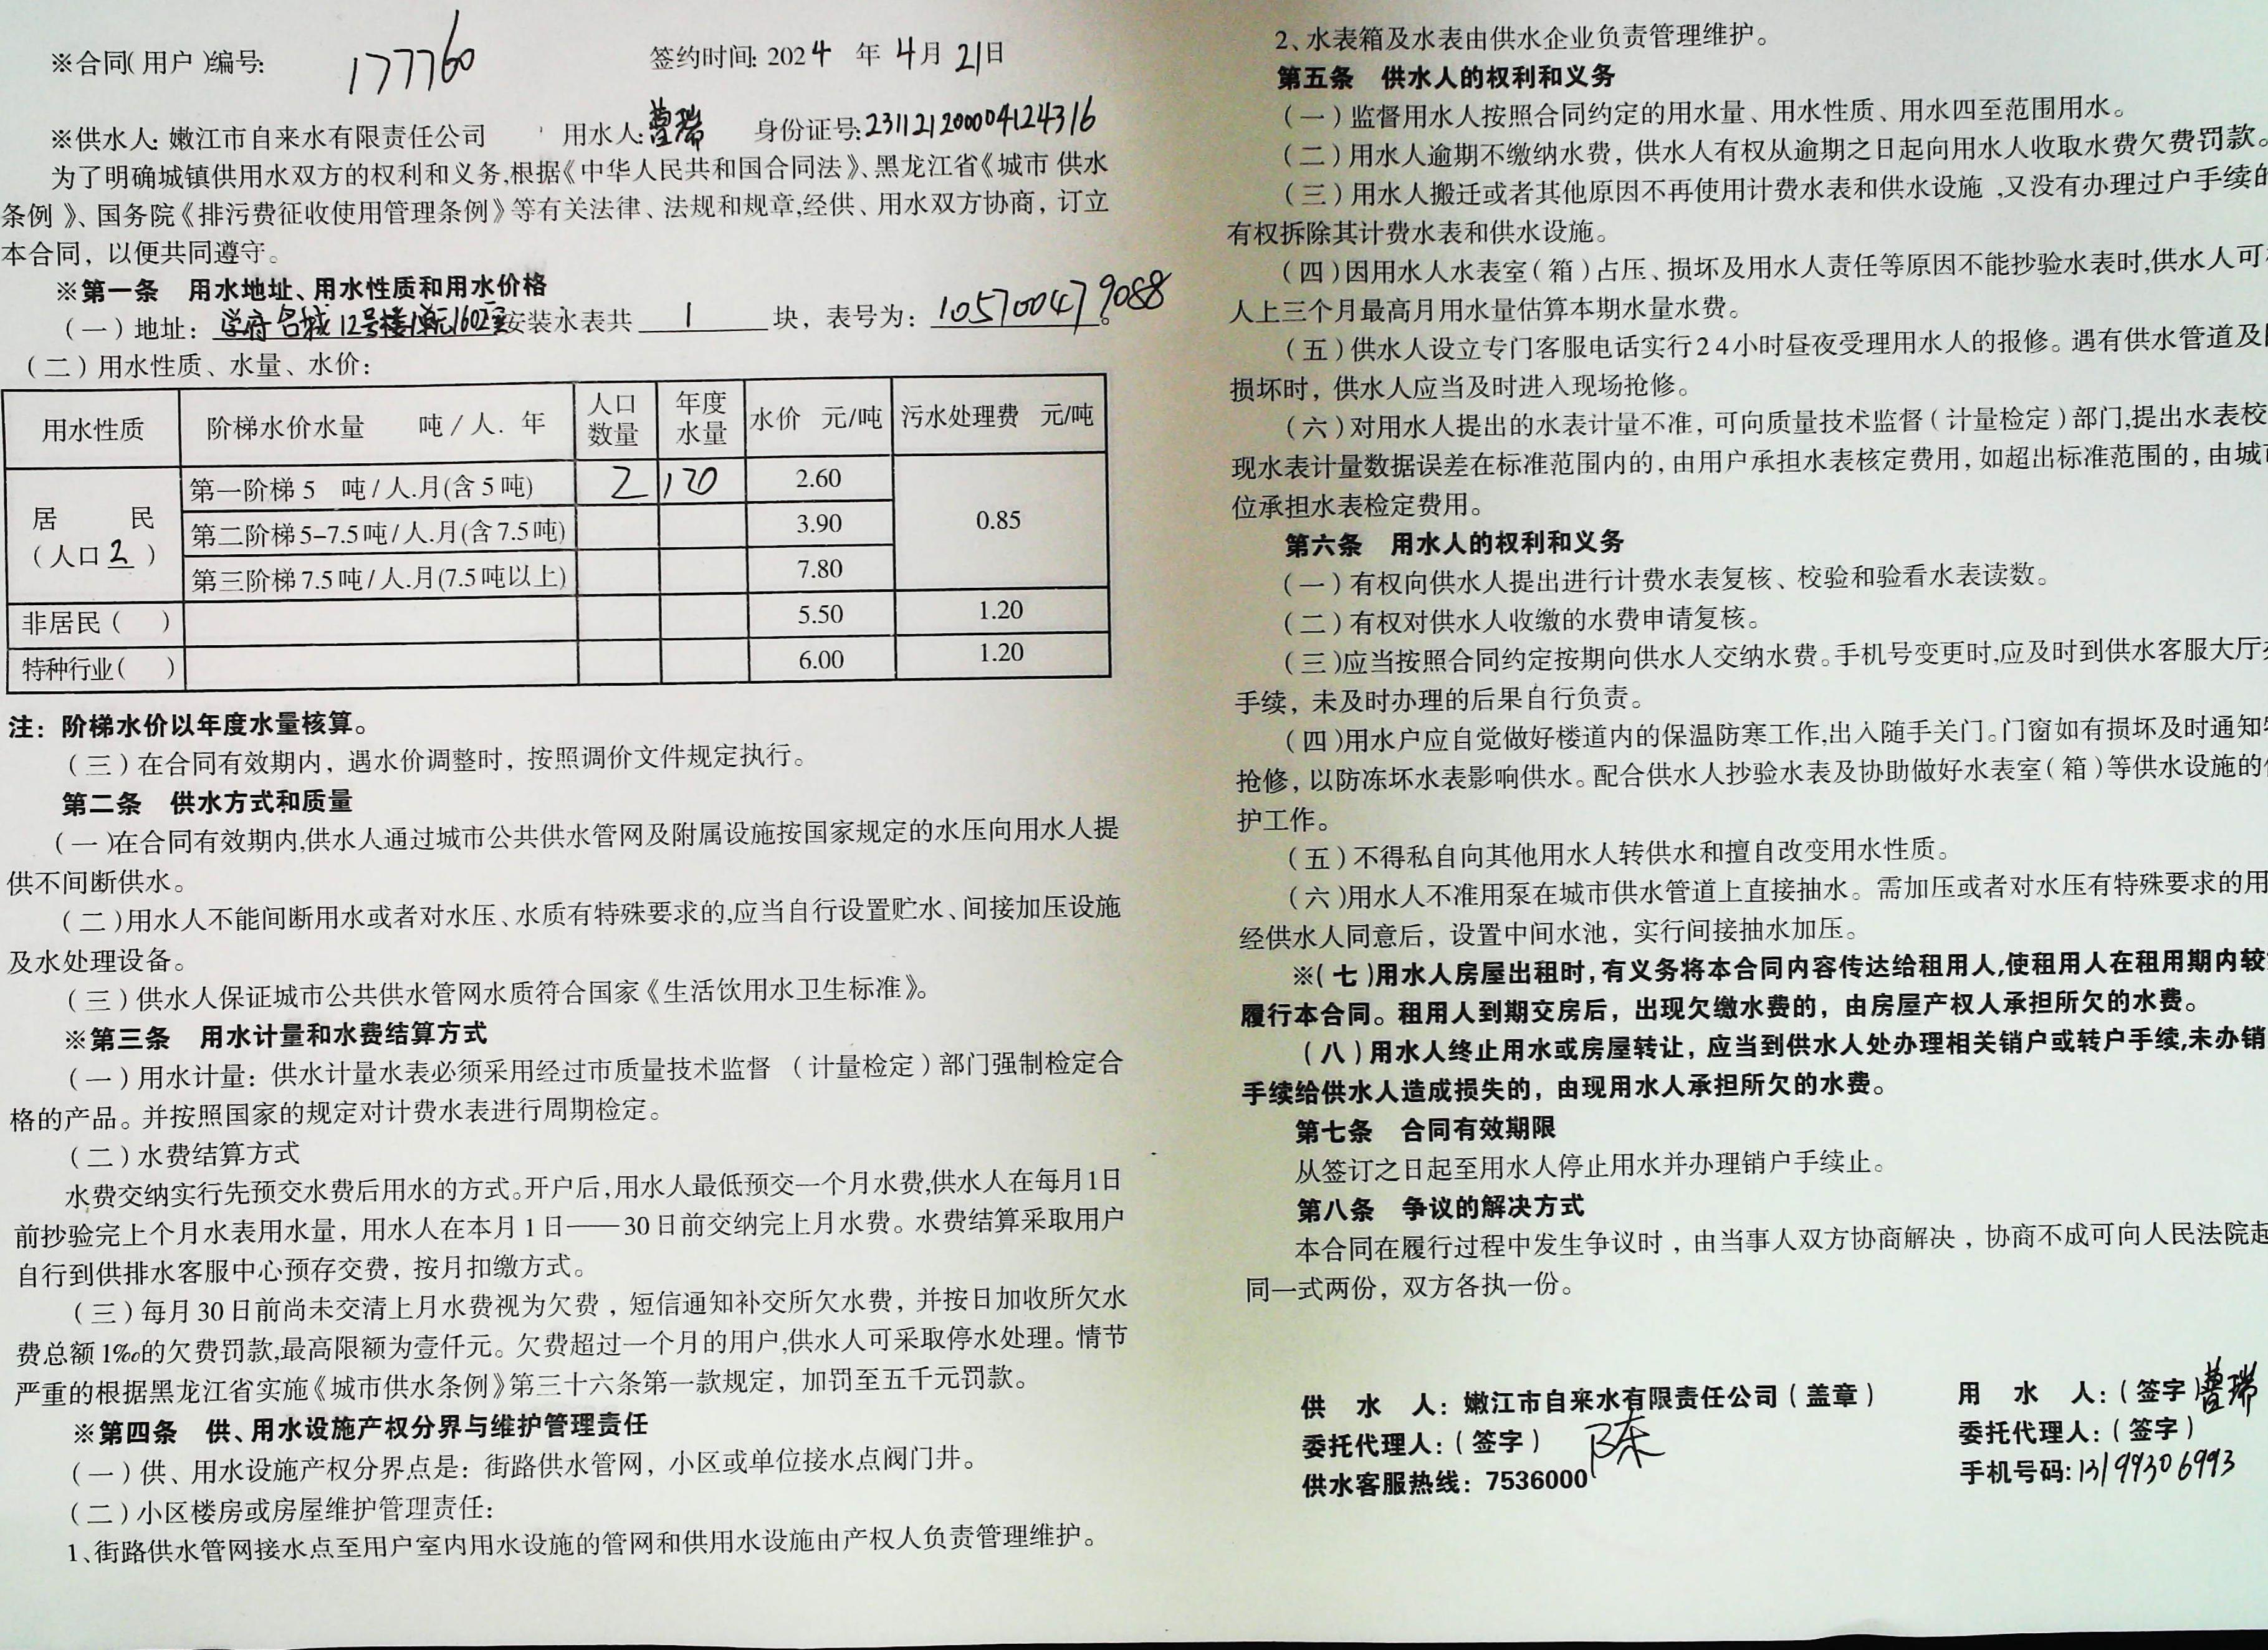 ※合同(用户)编号: 177760 签约时间: 2024 年 4月 21日
※供水人: 嫩江市自来水有限责任公司 用水人: 曹瑞 身份证号: 231121200004124316
为了明确城镇供用水双方的权利和义务,根据《中华人民共和国合同法》、黑龙江省《城市 供水
条例 》、国务院《排污费征收使用管理条例》等有关法律、法规和规章,经供、用水双方协商，订立
本合同，以便共同遵守。
※第一条 用水地址、用水性质和用水价格
(一)地址: 学府名城12号楼1单元1602室安装水表共 1 块，表号为: 105700479088。
(二)用水性质、水量、水价:
用水性质 阶梯水价水量 吨/人．年 人口数量 年度水量 水价 元/吨 污水处理费 元/吨
居 民 (人口2) 第一阶梯5 吨/人.月(含5吨) 2 120 2.60 0.85
第二阶梯5-7.5吨/人.月(含7.5吨) 3.90
第三阶梯7.5吨/人.月(7.5吨以上) 7.80
非居民( ) 5.50 1.20
特种行业( ) 6.00 1.20
注：阶梯水价以年度水量核算。
(三)在合同有效期内，遇水价调整时，按照调价文件规定执行。
第二条 供水方式和质量
(一)在合同有效期内,供水人通过城市公共供水管网及附属设施按国家规定的水压向用水人提
供不间断供水。
(二)用水人不能间断用水或者对水压、水质有特殊要求的,应当自行设置贮水、间接加压设施
及水处理设备。
(三)供水人保证城市公共供水管网水质符合国家《生活饮用水卫生标准》。
※第三条 用水计量和水费结算方式
(一)用水计量：供水计量水表必须采用经过市质量技术监督 (计量检定)部门强制检定合
格的产品。并按照国家的规定对计费水表进行周期检定。
(二)水费结算方式
水费交纳实行先预交水费后用水的方式。开户后,用水人最低预交一个月水费,供水人在每月1日
前抄验完上个月水表用水量，用水人在本月1日——30日前交纳完上月水费。水费结算采取用户
自行到供排水客服中心预存交费，按月扣缴方式。
(三)每月30日前尚未交清上月水费视为欠费，短信通知补交所欠水费，并按日加收所欠水
费总额1‰的欠费罚款,最高限额为壹仟元。欠费超过一个月的用户,供水人可采取停水处理。情节
严重的根据黑龙江省实施《城市供水条例》第三十六条第一款规定，加罚至五千元罚款。
※第四条 供、用水设施产权分界与维护管理责任
(一)供、用水设施产权分界点是：街路供水管网，小区或单位接水点阀门井。
(二)小区楼房或房屋维护管理责任:
1、街路供水管网接水点至用户室内用水设施的管网和供用水设施由产权人负责管理维护。
2、水表箱及水表由供水企业负责管理维护。
第五条 供水人的权利和义务
(一)监督用水人按照合同约定的用水量、用水性质、用水四至范围用水。
(二)用水人逾期不缴纳水费，供水人有权从逾期之日起向用水人收取水费欠费罚款。
(三)用水人搬迁或者其他原因不再使用计费水表和供水设施 ,又没有办理过户手续的
有权拆除其计费水表和供水设施。
(四)因用水人水表室(箱)占压、损坏及用水人责任等原因不能抄验水表时,供水人可
人上三个月最高月用水量估算本期水量水费。
(五)供水人设立专门客服电话实行24小时昼夜受理用水人的报修。遇有供水管道及
损坏时，供水人应当及时进入现场抢修。
(六)对用水人提出的水表计量不准，可向质量技术监督(计量检定)部门,提出水表校
现水表计量数据误差在标准范围内的，由用户承担水表核定费用，如超出标准范围的，由城
位承担水表检定费用。
第六条 用水人的权利和义务
(一)有权向供水人提出进行计费水表复核、校验和验看水表读数。
(二)有权对供水人收缴的水费申请复核。
(三)应当按照合同约定按期向供水人交纳水费。手机号变更时,应及时到供水客服大厅
手续，未及时办理的后果自行负责。
(四)用水户应自觉做好楼道内的保温防寒工作,出入随手关门。门窗如有损坏及时通知
抢修，以防冻坏水表影响供水。配合供水人抄验水表及协助做好水表室(箱)等供水设施的
护工作。
(五)不得私自向其他用水人转供水和擅自改变用水性质。
(六)用水人不准用泵在城市供水管道上直接抽水。需加压或者对水压有特殊要求的用
经供水人同意后，设置中间水池，实行间接抽水加压。
※(七)用水人房屋出租时,有义务将本合同内容传达给租用人,使租用人在租用期内较
履行本合同。租用人到期交房后，出现欠缴水费的，由房屋产权人承担所欠的水费。
(八)用水人终止用水或房屋转让，应当到供水人处办理相关销户或转户手续,未办销
手续给供水人造成损失的，由现用水人承担所欠的水费。
第七条 合同有效期限
从签订之日起至用水人停止用水并办理销户手续止。
第八条 争议的解决方式
本合同在履行过程中发生争议时，由当事人双方协商解决，协商不成可向人民法院起
同一式两份，双方各执一份。
供 水 人：嫩江市自来水有限责任公司(盖章) 用 水 人：(签字)曹瑞
委托代理人：(签字) 陈 委托代理人：(签字)
供水客服热线：7536000 手机号码: 13199306993